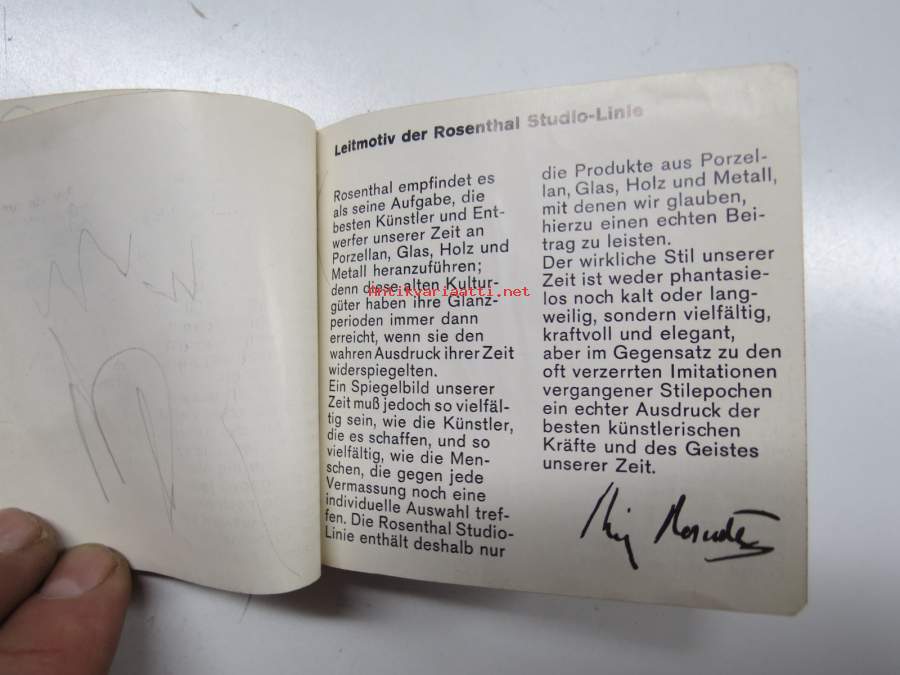 Leitmotiv der Rosenthal Studio-Linie
Rosenthal empfindet es
als seine Aufgabe, die
besten Künstler und Ent-
werfer unserer Zeit an
Porzellan, Glas, Holz und
Metall heranzuführen;
denn diese alten Kultur-
güter haben ihre Glanz-
perioden immer dann
erreicht, wenn sie den
wahren Ausdruck ihrer Zeit
widerspiegelten.
Ein Spiegelbild unserer
Zeit muß jedoch so vielfäl-
tig sein, wie die Künstler,
die es schaffen, und so
vielfältig, wie die Men-
schen, die gegen jede
Vermassung noch eine
individuelle Auswahl tref-
fen. Die Rosenthal Studio-
Linie enthält deshalb nur
die Produkte aus Porzel-
lan, Glas, Holz und Metall,
mit denen wir glauben,
hierzu einen echten Bei-
trag zu leisten.
Der wirkliche Stil unserer
Zeit ist weder phantasie-
los noch kalt oder lang-
weilig, sondern vielfältig,
kraftvoll und elegant,
aber im Gegensatz zu den
oft verzerrten Imitationen
vergangener Stilepochen
ein echter Ausdruck der
besten künstlerischen
Kräfte und des Geistes
unserer Zeit.
Antikvariaatti.net